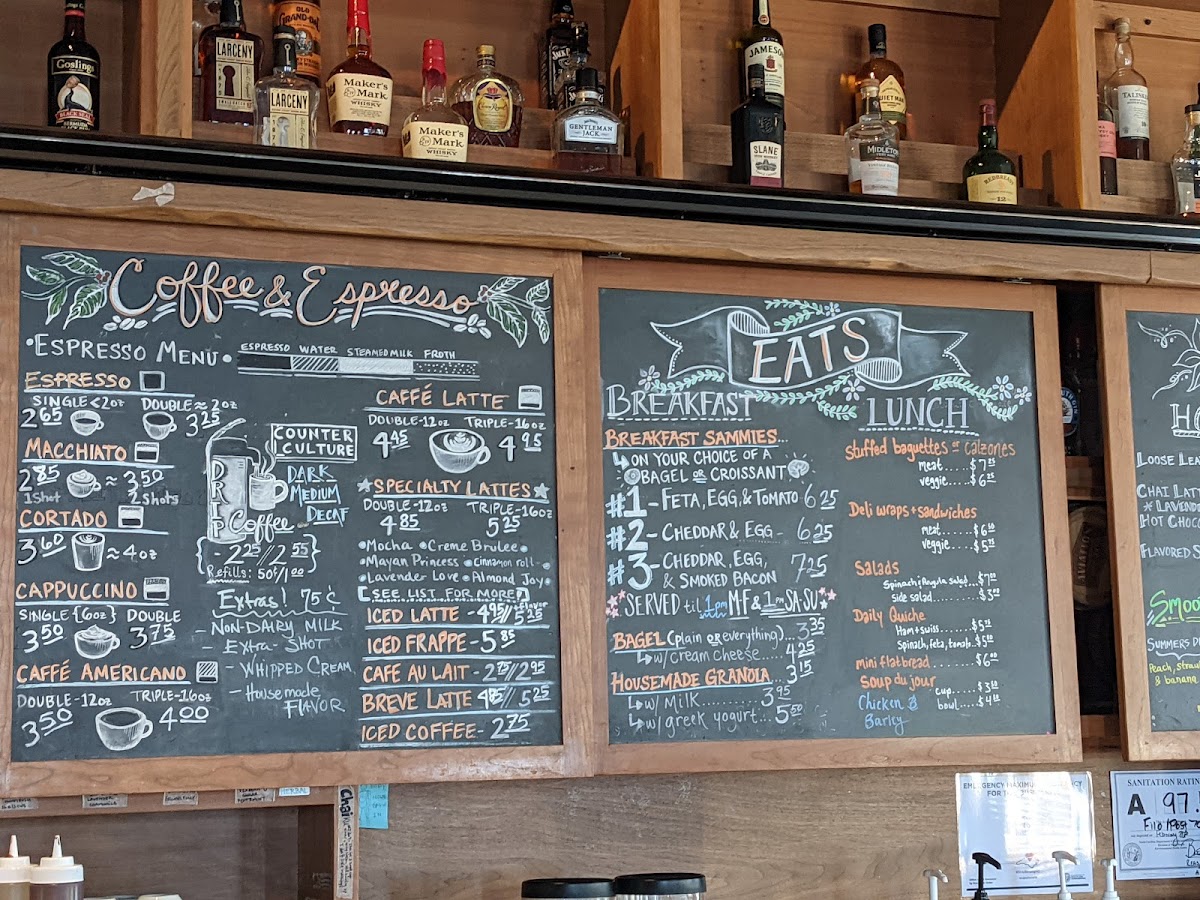 Goslings
BLACK SEAL
LARCENY
LARCENY
OLD GRAND-DAD
Maker's Mark
WHISKY
Maker's Mark
WHISKY
Crown Royal
GENTLEMAN JACK
JAMESON
SLANE
QUIET MAN
MIDLETON
REDBREAST
12
TALISKER
Coffee & Espresso
•ESPRESSO MENU•
ESPRESSO WATER STEAMED MILK FROTH
ESPRESSO
SINGLE <2oz DOUBLE ≈ 2oz
2.65 3.25
MACCHIATO
2.85 ≈ 3.50
1 Shot 2 Shots
CORTADO
3.60 ≈ 4oz
CAPPUCCINO
SINGLE {6oz} DOUBLE
3.50 3.75
CAFFÉ AMERICANO
DOUBLE-12oz TRIPLE-16oz
3.50 4.00
COUNTER CULTURE
DARK
MEDIUM
DECAF
DRIP
Coffee
{-2.25/2.55}
Refills: 50¢/1.00
Extras! 75¢
- NON-DAIRY MILK
- EXTRA-SHOT
- WHIPPED CREAM
- Housemade FLAVOR
CAFFÉ LATTE
DOUBLE-12oz TRIPLE-16oz
4.45 4.95
★SPECIALTY LATTES★
DOUBLE-12oz TRIPLE-16oz
4.85 5.25
•Mocha •Creme Brulee•
•Mayan Princess •Cinnamon roll-
•Lavender Love •Almond Joy•
[SEE LIST FOR MORE!]
ICED LATTE - 4.95/flavor 5.25
ICED FRAPPE - 5.85
CAFE AU LAIT - 2.75//2.95
BREVE LATTE 4.85/5.25
ICED COFFEE - 2.75
EATS
BREAKFAST
BREAKFAST SAMMIES...
ON YOUR CHOICE OF A
BAGEL OR CROISSANT
#1 - FETA, EGG, & TOMATO 6.25
#2 - CHEDDAR & EGG - 6.25
#3 - CHEDDAR, EGG,
& SMOKED BACON 7.25
SERVED til 1pm MF & 1pm SA-SU
BAGEL (plain or everything)... 3.35
w/ cream cheese..... 4.25
HOUSEMADE GRANOLA... 3.15
w/ MILK......... 3.95
w/ greek yogurt... 5.50
LUNCH
stuffed baguettes or calzones
meat.....$7.25
veggie.....$6.25
Deli wraps + sandwiches
meat.....$6.50
veggie....$5.75
Salads
Spinach/Arugula salad...$7.00
side salad......$3.00
Daily Quiche
Ham + swiss.......$5.25
Spinach, feta, tomato..$5.00
mini flatbread.......$6.00
Soup du jour
cup.....$3.50
bowl.....$4.50
Chicken & Barley
LOOSE LEA
CHAI LAT
* LAVEND
HOT CHOC
FLAVORED S
Smoo
SUMMERS
Peach, straw
& banana
Chai
EMERGENCY MAXIMU
FOR T
SANITATION RATIN
A 97.